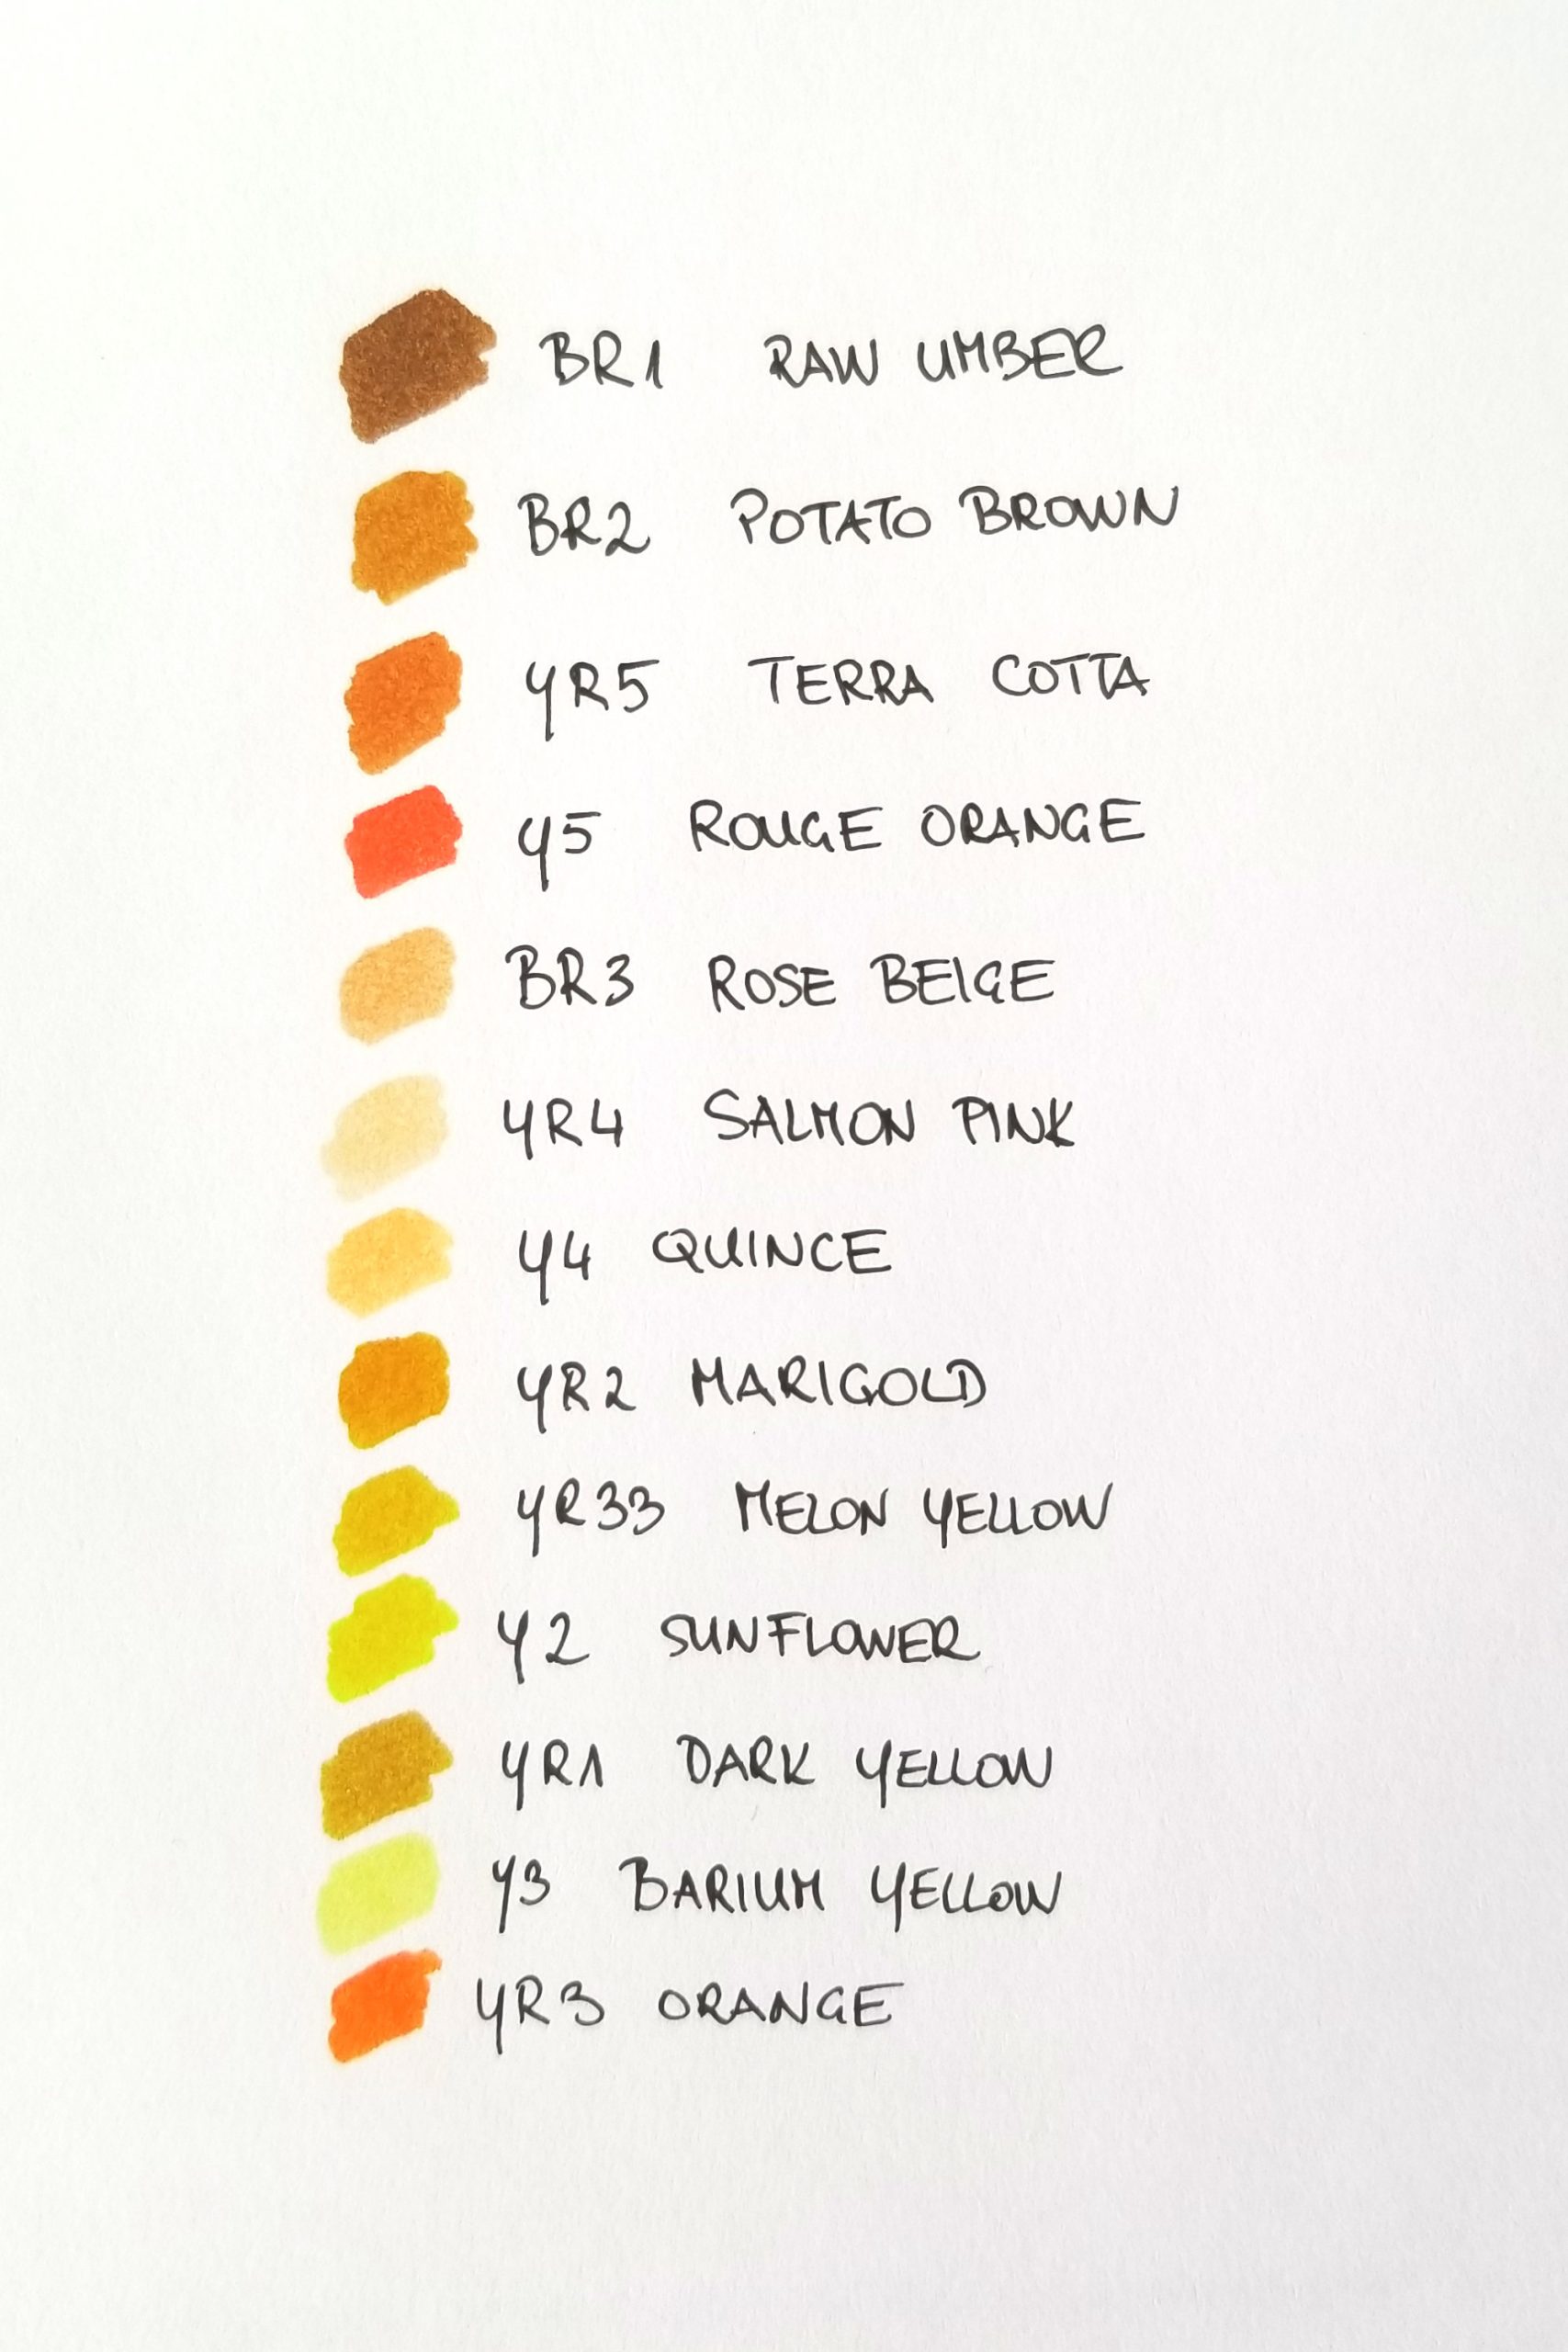 BR1 RAW UMBER
BR2 POTATO BROWN
YR5 TERRA COTTA
Y5 ROUGE ORANGE
BR3 ROSE BEIGE
YR4 SALMON PINK
Y4 QUINCE
YR2 MARIGOLD
YR33 MELON YELLOW
Y2 SUNFLOWER
YR1 DARK YELLOW
Y3 BARIUM YELLOW
YR3 ORANGE